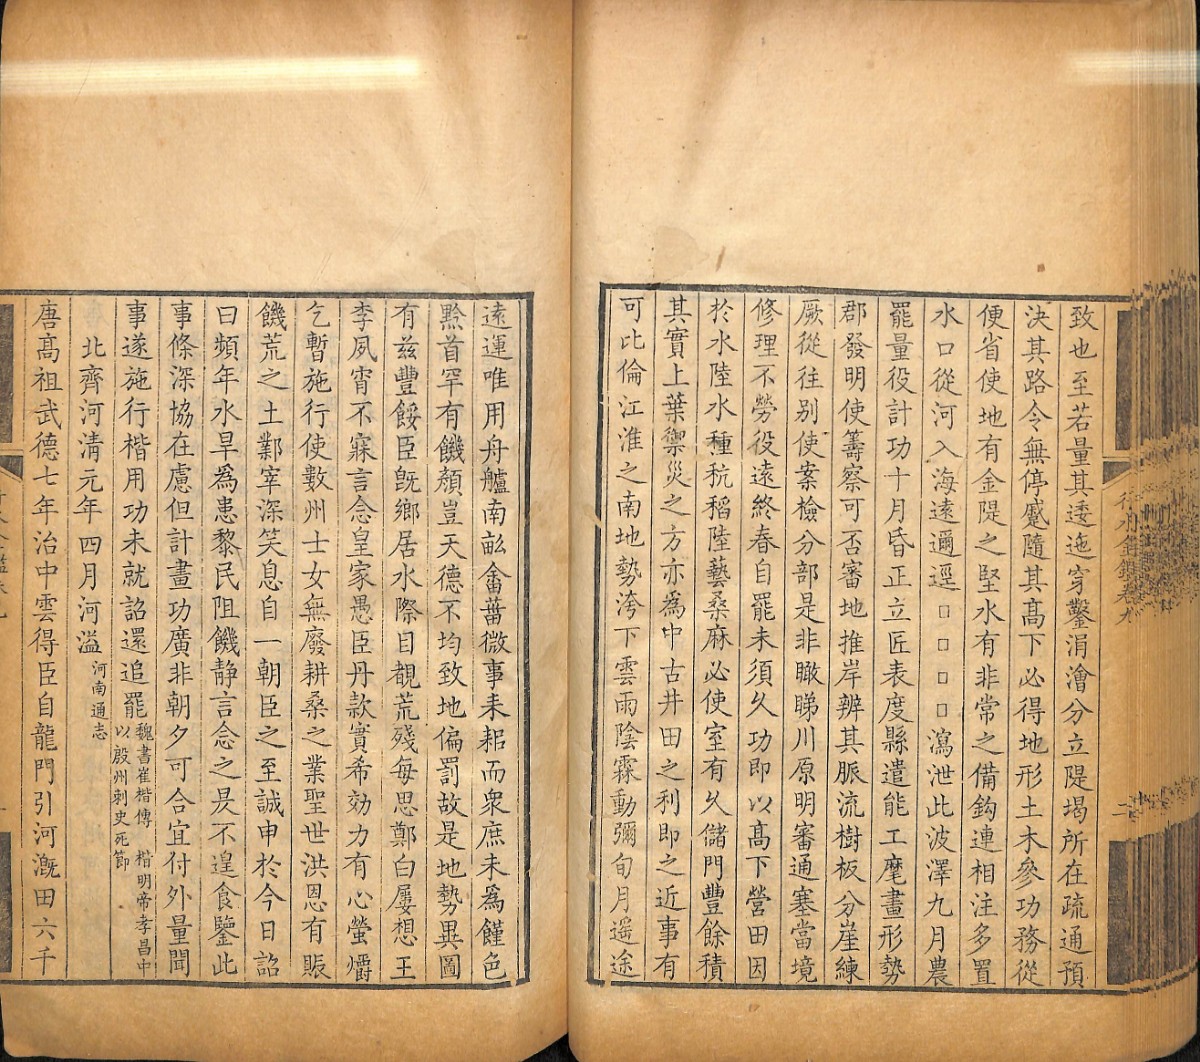 致也至若量其逶迤穿鑿涓澮分立隄堨所在疏通預
決其路令無停蹙隨其高下必得地形土木參功務從
便省使地有金隄之堅水有非常之備鈎連相注多置
水口從河入海遠邇逕□□□□瀉泄此波澤九月農
罷量役計功十月昏正立匠表度縣遣能工麾畫形勢
郡發明使籌察可否審地推岸辨其脈流樹板分崖練
厥從往別使案檢分部是非瞰睇川原明審通塞當境
修理不勞役遠終春自罷未須久功即以高下營田因
於水陸水種秔稻陸藝桑麻必使室有久儲門豐餘積
其實上葉禦災之方亦爲中古井田之利即之近事有
可比倫江淮之南地勢洿下雲雨陰霖動彌旬月遥途
行水金鑑卷九
遠運唯用舟艫南畝畬菑微事耒耜而衆庶未爲饉色
黔首罕有饑顏豈天德不均致地偏罰故是地勢異圖
有兹豐餒臣旣鄉居水際目覩荒殘每思鄭白屢想王
李夙宵不寐言念皇家愚臣丹款實希効力有心螢爝
乞暫施行使數州士女無廢耕桑之業聖世洪恩有賑
饑荒之土鄴宰深笑息自一朝臣之至誠申於今日詔
曰頻年水旱爲患黎民阻饑静言念之昃不遑食鑒此
事條深協在慮但計畫功廣非朝夕可合宜付外量聞
事遂施行楷用功未就詔還追罷魏書崔楷傳 楷明帝孝昌中以殷州刺史死節
北齊河清元年四月河溢河南通志
唐高祖武德七年治中雲得臣自龍門引河漑田六千